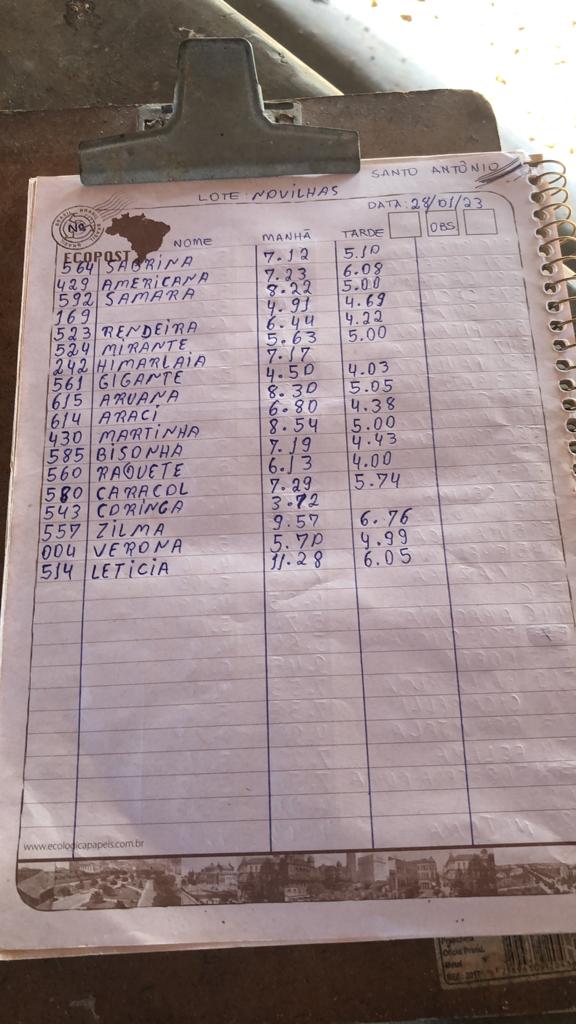 SANTO ANTÔNIO
LOTE: NOVILHAS
DATA: 28/01/23
ECOPOST
NOME MANHÃ TARDE OBS
564 SABRINA 7.12 5.10
429 AMERICANA 7.23 6.08
592 SAMARA 8.22 5.00
169 4.91 4.69
523 RENDEIRA 6.44 4.22
524 MIRANTE 5.63 5.00
242 HIMARLAIA 7.17
561 GIGANTE 4.50 4.03
615 ARUANA 8.30 5.05
614 ARACI 6.80 4.38
430 MARTINHA 8.54 5.00
585 BISONHA 7.19 4.43
560 RAQUETE 6.13 4.00
580 CARACOL 7.29 5.74
543 CORINGA 3.72
557 ZILMA 9.57 6.76
004 VERONA 5.70 4.99
514 LETICIA 11.28 6.05
www.ecologicapapeis.com.br